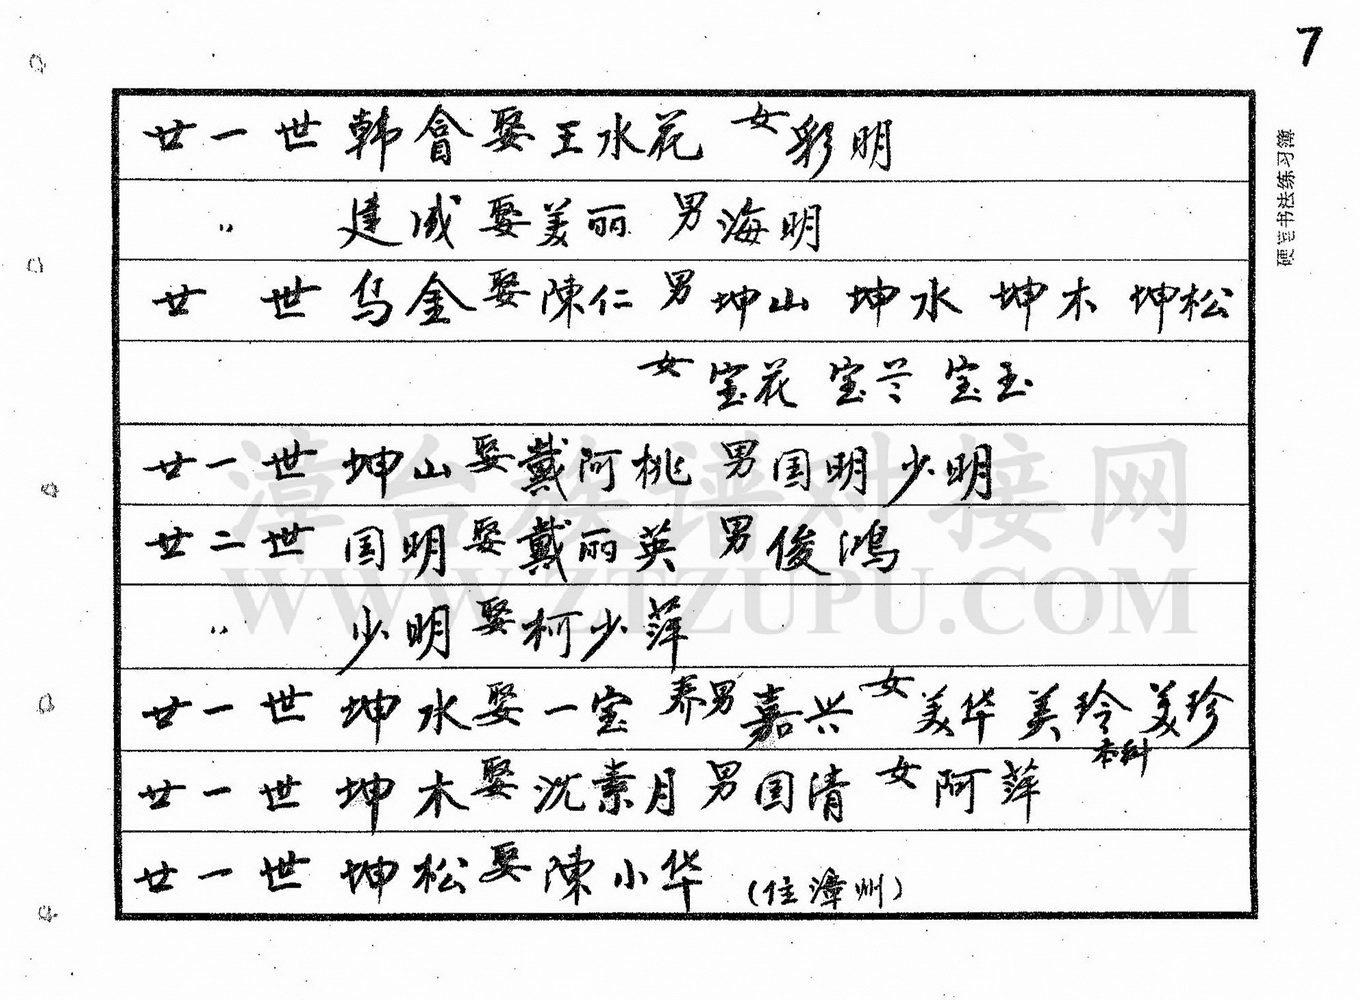 7
硬笔书法练习簿
廿一世 韩會 娶 王水花 女 彩明
〃 建成 娶 美丽 男 海明
廿 世 乌金 娶 陳仁 男 坤山 坤水 坤木 坤松
女 宝花 宝兰 宝玉
廿一世 坤山 娶 戴阿桃 男 国明 少明
廿二世 国明 娶 戴丽英 男 俊鴻
〃 少明 娶 柯少萍
廿一世 坤水 娶 一宝 养男 嘉兴 女 美华 美玲 美珍
本科
廿一世 坤木 娶 沈素月 男 国清 女 阿萍
廿一世 坤松 娶 陳小华 (住漳州)
漳台族谱对接网
WWW.ZTZUPU.COM